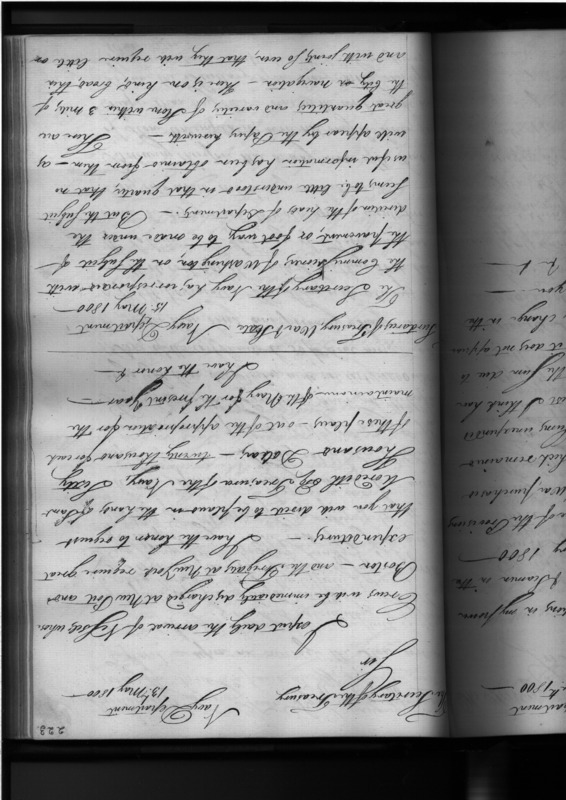 223
Navy Department
13. May 1800 —
The Secretary of the Treasury
Sir
I expect daily the arrival of Vessels, whose
Crews will be immediately discharged at New Port and
Boston — and the Frigate at New York require great
expenditures. — I have the honor to request
that you will direct to be placed in the hands of Sam
Meredith Esq Treasurer of the Navy Sixty
Thousand Dollars — twenty thousand for each
of these places — out of the appropriation for the
maintainance of the Navy for the present year —
I have the honor &
Secretaries of Treasury, War & State. Navy Department
15. May 1800 —
The Secretary of the Navy has corresponded with
the Commissioners of Washington, on the subject of
the pavement or foot way to be made under the
direction of the heads of Departments. — But the subject
seems to be little understood in that quarter, that no
useful information has been obtained from them — as
will appear by the Papers herewith — There are
great quantities and varieties of Stone within 3 miles of
the City or navigation — There is one kind, broad, thin
and with joints so even, that they will require little or
partment
1800 —
in my power
in the
1800 —
of the Provision
purchase
which remains
unexpended
I think her
the sum due is
it does not appear
change in the
you —